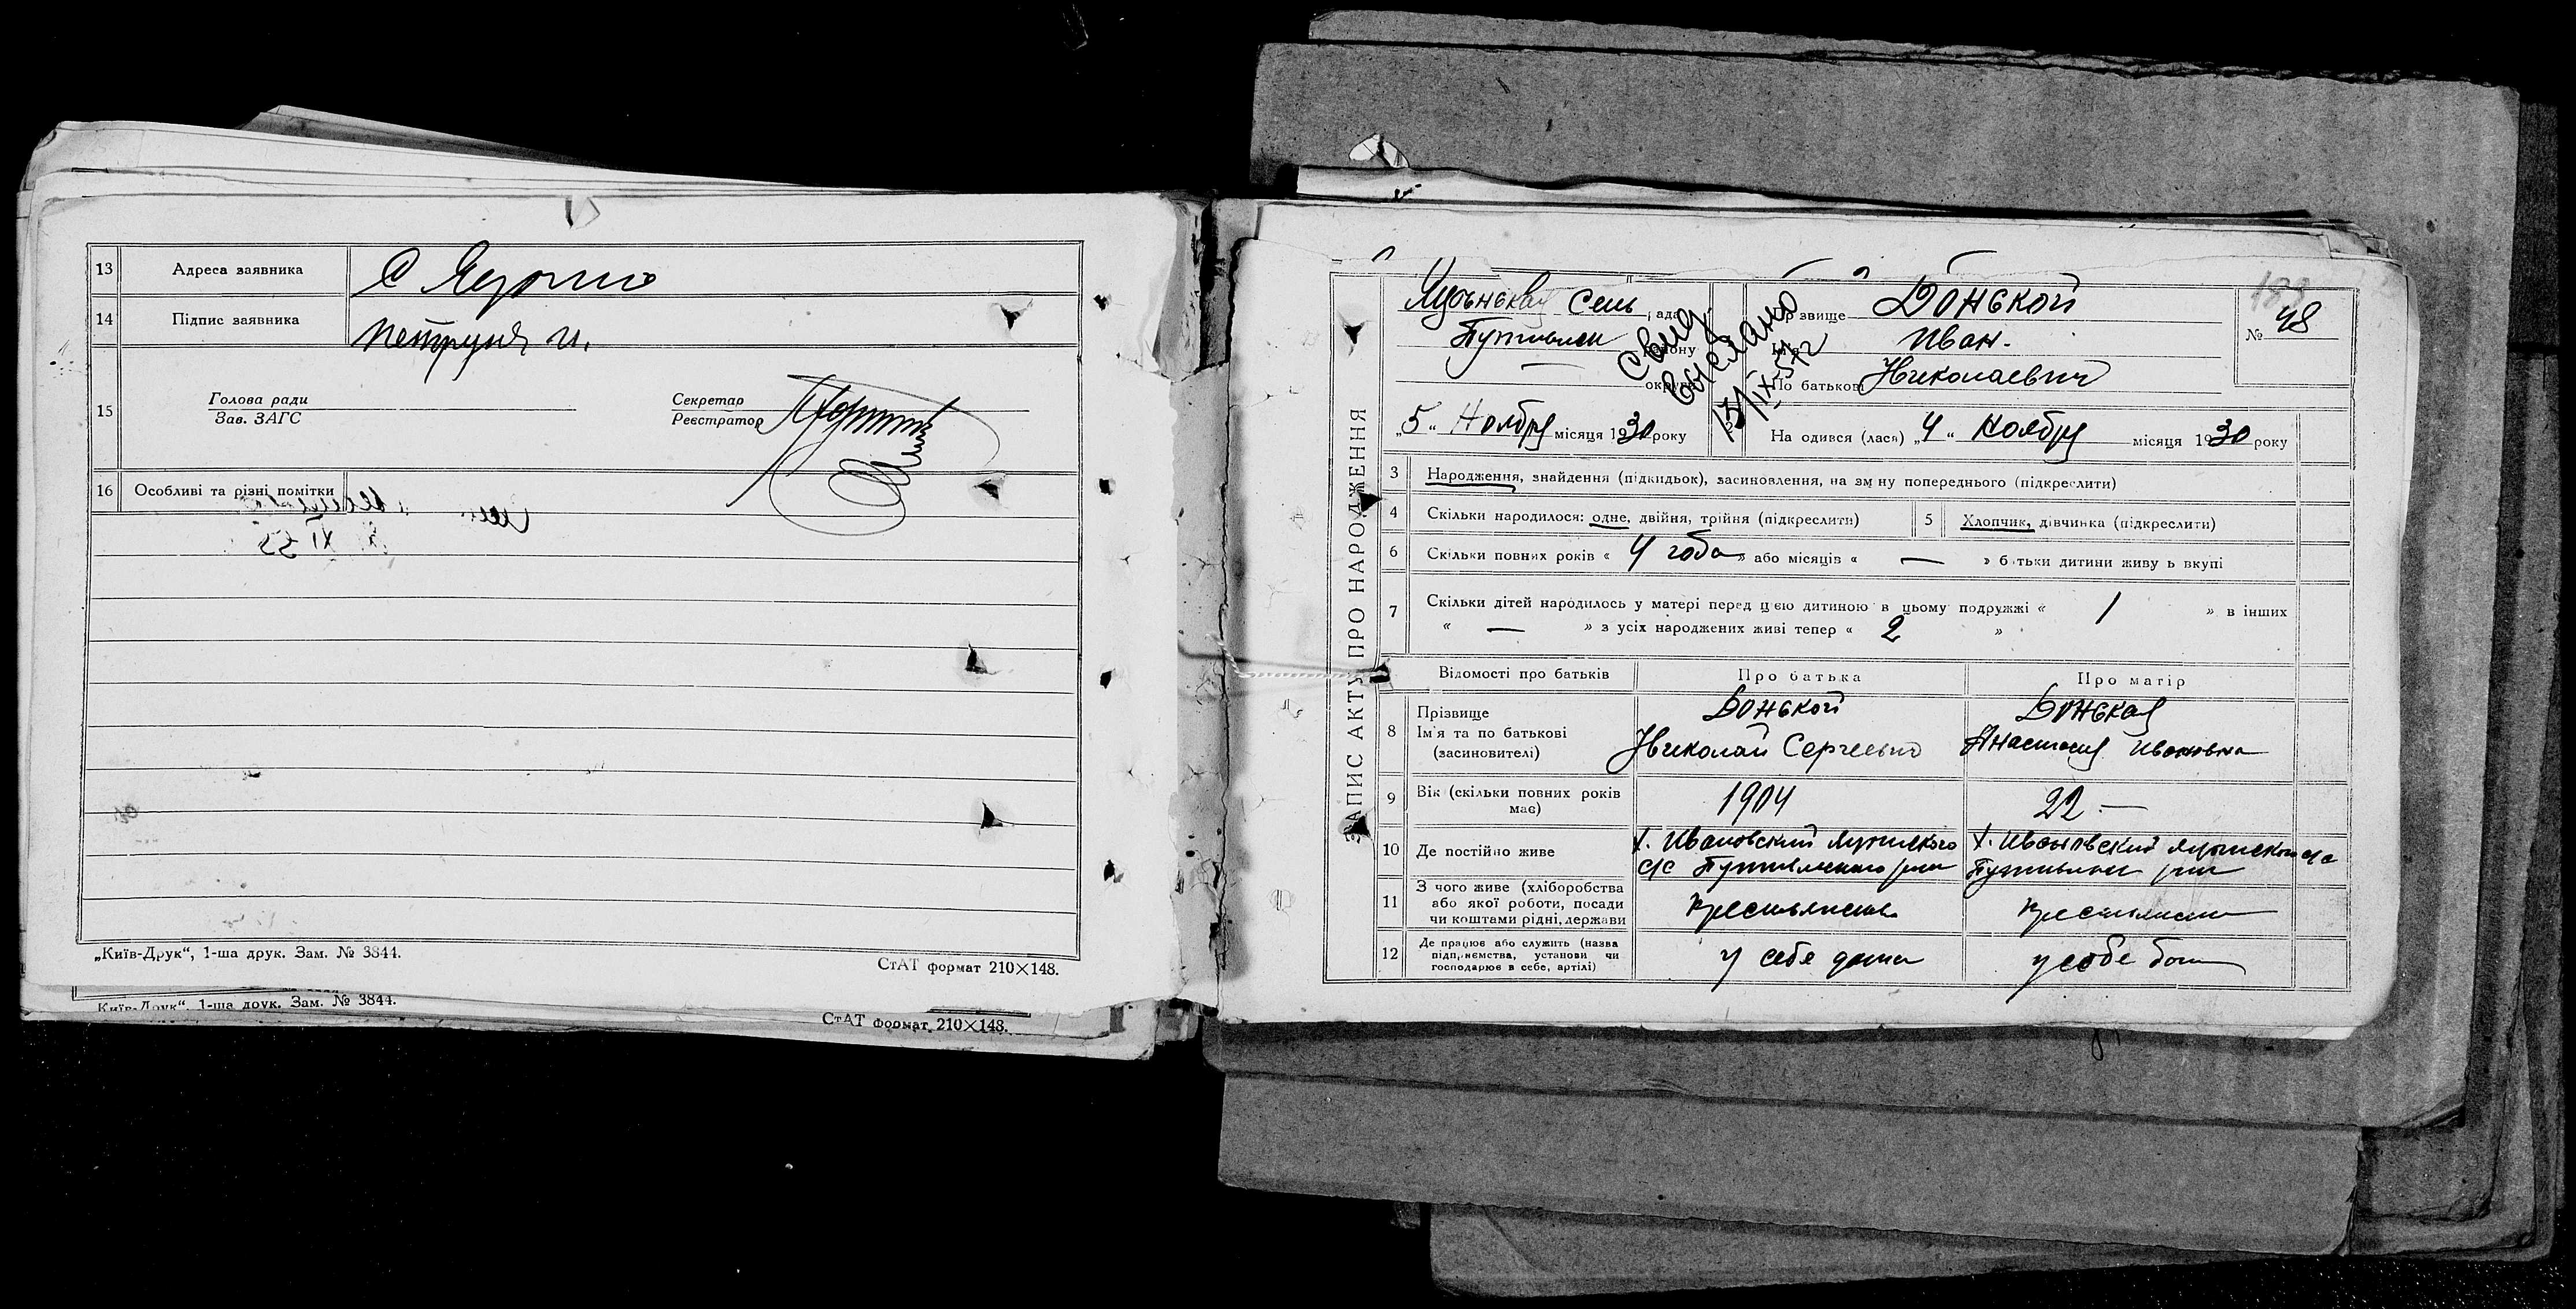 13 Адреса заявника
14 Підпис заявника
Петруня И.
15 Голова ради
Зав. ЗАГС
Секретар
Реєстратор
16 Особливі та різні помітки
„Київ-Друк“, 1-ша друк. Зам. № 3844.
СтАТ формат 210×148.
Київ-Друк“, 1-ша друк. Зам. № 3844.
СтАТ формат 210×148.
ЗАПИС АКТУ ПРО НАРОДЖЕННЯ
Сель
Свид.
выслано
Прізвище Донской
№ 48
Иван.
По батькові Николаевич
„5“ Ноября місяця 1930 року
На одився (лася) „4“ Ноября місяця 1930 року
3 Народження, знайдення (підкидьок), засиновлення, на зміну попереднього (підкреслити)
4 Скільки народилося: одне, двійня, трійня (підкреслити)
5 Хлопчик, дівчинка (підкреслити)
6 Скільки повних років « 4 года » або місяців « — » батьки дитини живуть вкупі
7 Скільки дітей народилось у матері перед цією дитиною в цьому подружжі « 1 » в інших
« — » з усіх народжених живі тепер « 2 »
Відомості про батьків
Про батька
Про матір
8 Прізвище
Ім'я та по батькові
(засиновителі)
Донской
Николай Сергеевич
Донская
Анастасия Ивановна
9 Вік (скільки повних років має)
1904
22 —
10 Де постійно живе
х. Ивановский
с/с Путивльского
х. Ивановский с/с
11 З чого живе (хліборобства
або якої роботи, посади
чи коштами рідні, держави
12 Де працює або служить (назва
підприємства, установи чи
господарює в себе, артілі)
у себе дома
у себе дом